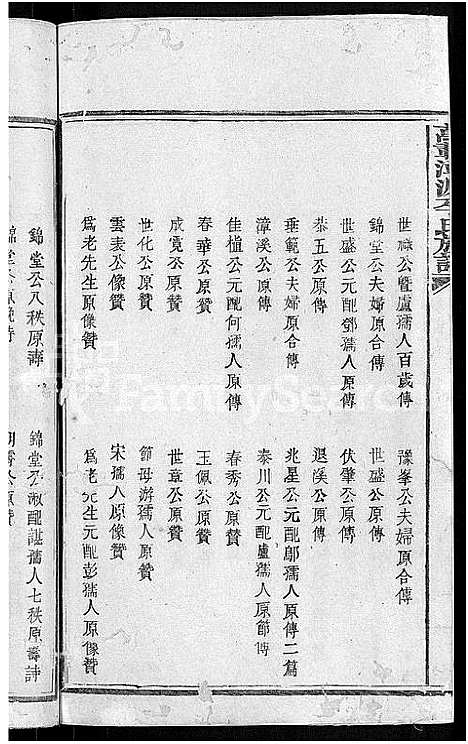 世祿公暨盧孺人百歲傳
豫峯公夫婦原合傳
錦堂公夫婦原合傳
世盛公原傳
世盛公元配鄧孺人原傳
伏肇公原傳
恭五公原傳
退溪公原傳
垂範公夫婦原合傳
兆星公元配鄔孺人原傳二篇
漳溪公原傳
泰川公元配盧孺人原節傳
佳植公元配何孺人原傳
春秀公原傳
春華公原贊
玉佩公原贊
成寬公原贊
世章公原贊
世化公原像贊
節母游孺人原贊
雲表公像贊
宋孺人原像贊
為老先生原像贊
為老先生元配彭孺人原像贊
錦堂公八秩原壽
錦堂公淑配諶孺人七秩原壽詩
FamilySearch